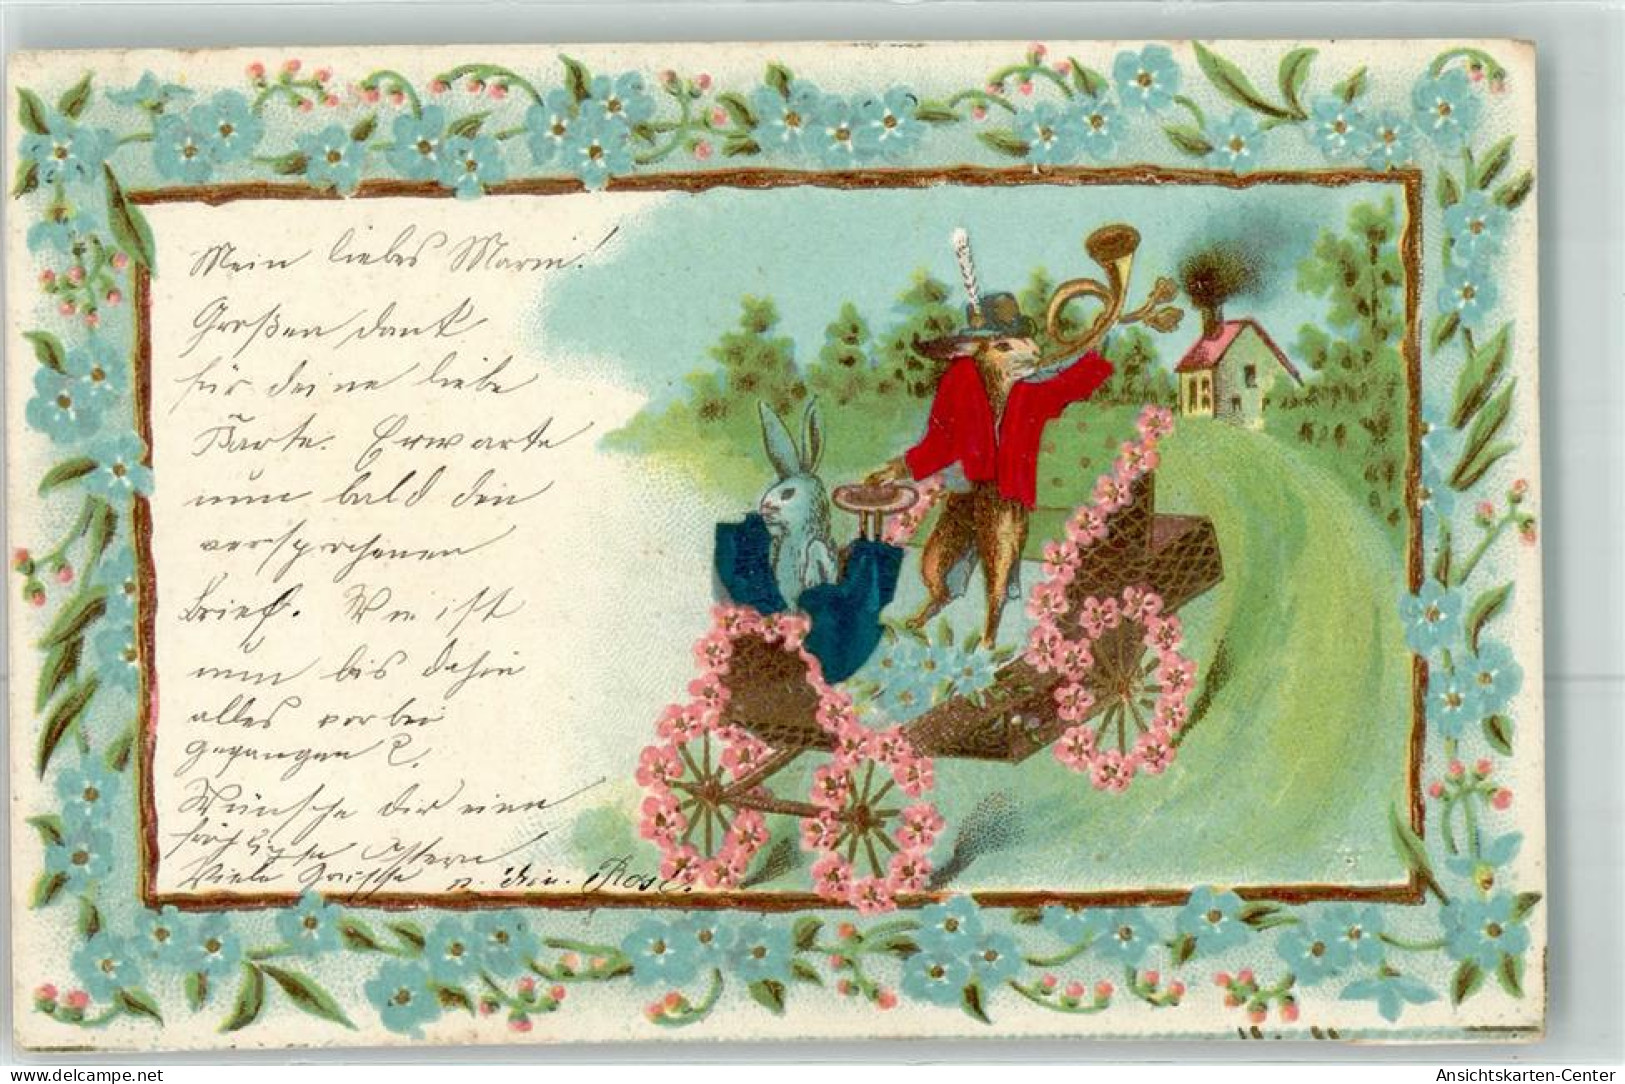 Mein liebes Marie!
Großen Dank
für deine liebe
Karte. Erwarte
nun bald den
versprochenen
Brief. Wie ist
nun bis dahin
alles vorbei
gegangen?
Wünsche dir eine
fröhliche Ostern
Viele Grüsse v. Rosl.
Ansichtskarten-Center